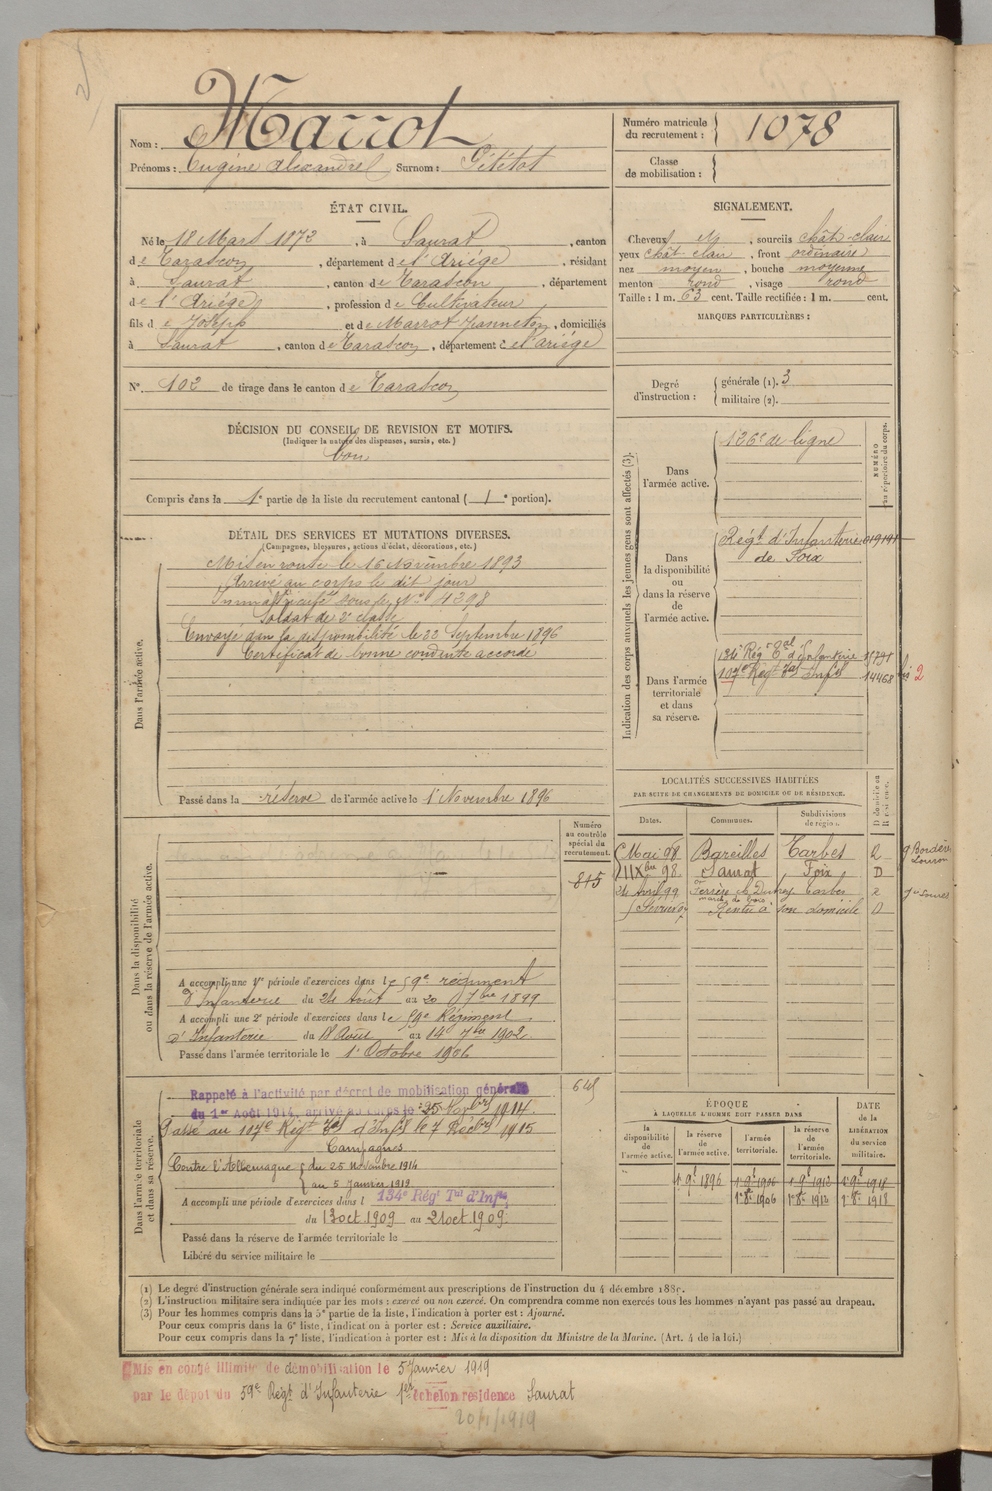 Nom : Marrot
Prénoms : Eugène Alexandre Surnom : Pététot
Numéro matricule du recrutement : 1078
Classe de mobilisation :
ÉTAT CIVIL.
Né le 18 Mars 1873, à Saurat, canton
de Tarascon, département de l'Ariége, résidant
à Saurat, canton de Tarascon, département
de l'Ariége, profession de Cultivateur
fils de Joseph et de Marrot Jeanneton, domiciliés
à Saurat, canton de Tarascon, département de l'ariége
N°. 102 de tirage dans le canton de Tarascon
DÉCISION DU CONSEIL DE REVISION ET MOTIFS.
(Indiquer la nature des dispenses, sursis, etc.)
bon
Compris dans la 1e partie de la liste du recrutement cantonal (1e portion).
SIGNALEMENT.
Cheveux et, sourcils chât-clair
yeux chât clair, front ordinaire
nez moyen, bouche moyenne
menton rond, visage rond
Taille : 1 m. 63 cent. Taille rectifiée : 1 m. cent.
MARQUES PARTICULIÈRES :
Degré d'instruction : générale (1). 3
militaire (2).
DÉTAIL DES SERVICES ET MUTATIONS DIVERSES.
(Campagnes, blessures, actions d'éclat, décorations, etc.)
Dans l'armée active.
Mis en route le 16 Novembre 1893
Arrivé au corps le dit jour
Immatriculé sous le N° 4298
Soldat de 2e classe
Envoyé dans la disponibilité le 22 Septembre 1896
Certificat de bonne conduite accordé
Passé dans la réserve de l'armée active le 1 Novembre 1896
Indication des corps auxquels les jeunes gens sont affectés (3).
NUMÉRO au répertoire du corps.
Dans l'armée active.
126e de ligne
Dans la disponibilité ou dans la réserve de l'armée active.
Régt d'Infanterie
de Foix
Dans l'armée territoriale et dans sa réserve.
134e Régt Tal d'Infanterie
107e Régt Tal Infie 14468
2
LOCALITÉS SUCCESSIVES HABITÉES
PAR SUITE DE CHANGEMENTS DE DOMICILE OU DE RÉSIDENCE.
Dates. Communes. Subdivisions de région. Domicile ou Résidence.
Mai 98 Bareilles Tarbes R g Bordères Louron
IIXbre 98 Saurat Foix D
24 Avril 99 Tarbes R
Rentré à son domicile D
Dans la disponibilité ou dans la réserve de l'armée active.
Numéro au contrôle spécial du recrutement.
815
A accompli une 1re période d'exercices dans le 59e régiment
d'Infanterie du 24 Août au 20 7bre 1899
A accompli une 2e période d'exercices dans le 59e Régiment
d'Infanterie du 18 Août au 14 7bre 1902
Passé dans l'armée territoriale le 1 Octobre 1906
Dans l'armée territoriale et dans sa réserve.
Rappelé à l'activité par décret de mobilisation générale
du 1er Août 1914, arrivé au corps le 25 Novbre 1914.
Passé au 107e Régt Tal d'Infie le 7 Décbre 1915
Campagnes
Contre l'Allemagne du 25 novembre 1914
au 5 Janvier 1919
A accompli une période d'exercices dans l 134e Régt Tal d'Infie
du 13 oct 1909 au 21 oct 1909.
Passé dans la réserve de l'armée territoriale le
Libéré du service militaire le
ÉPOQUE
À LAQUELLE L'HOMME DOIT PASSER DANS
DATE DE LA LIBÉRATION du service militaire.
la disponibilité de l'armée active. la réserve de l'armée active. l'armée territoriale. la réserve de l'armée territoriale.
1 9bre 1896 1 9bre 1906 1 9bre 1912 1 9bre 1918
1r 8bre 1906 1r 8bre 1912 1r 8bre 1918
(1) Le degré d'instruction générale sera indiqué conformément aux prescriptions de l'instruction du 4 décembre 1889.
(2) L'instruction militaire sera indiquée par les mots : exercé ou non exercé. On comprendra comme non exercés tous les hommes n'ayant pas passé au drapeau.
(3) Pour les hommes compris dans la 5e partie de la liste, l'indication à porter est : Ajourné.
Pour ceux compris dans la 6e liste, l'indication à porter est : Service auxiliaire.
Pour ceux compris dans la 7e liste, l'indication à porter est : Mis à la disposition du Ministre de la Marine. (Art. 4 de la loi.)
Mis en congé illimité de démobilisation le 5 Janvier 1919
par le dépôt du 59e Régt d'Infanterie 1er échelon résidence Saurat
20/1/1919